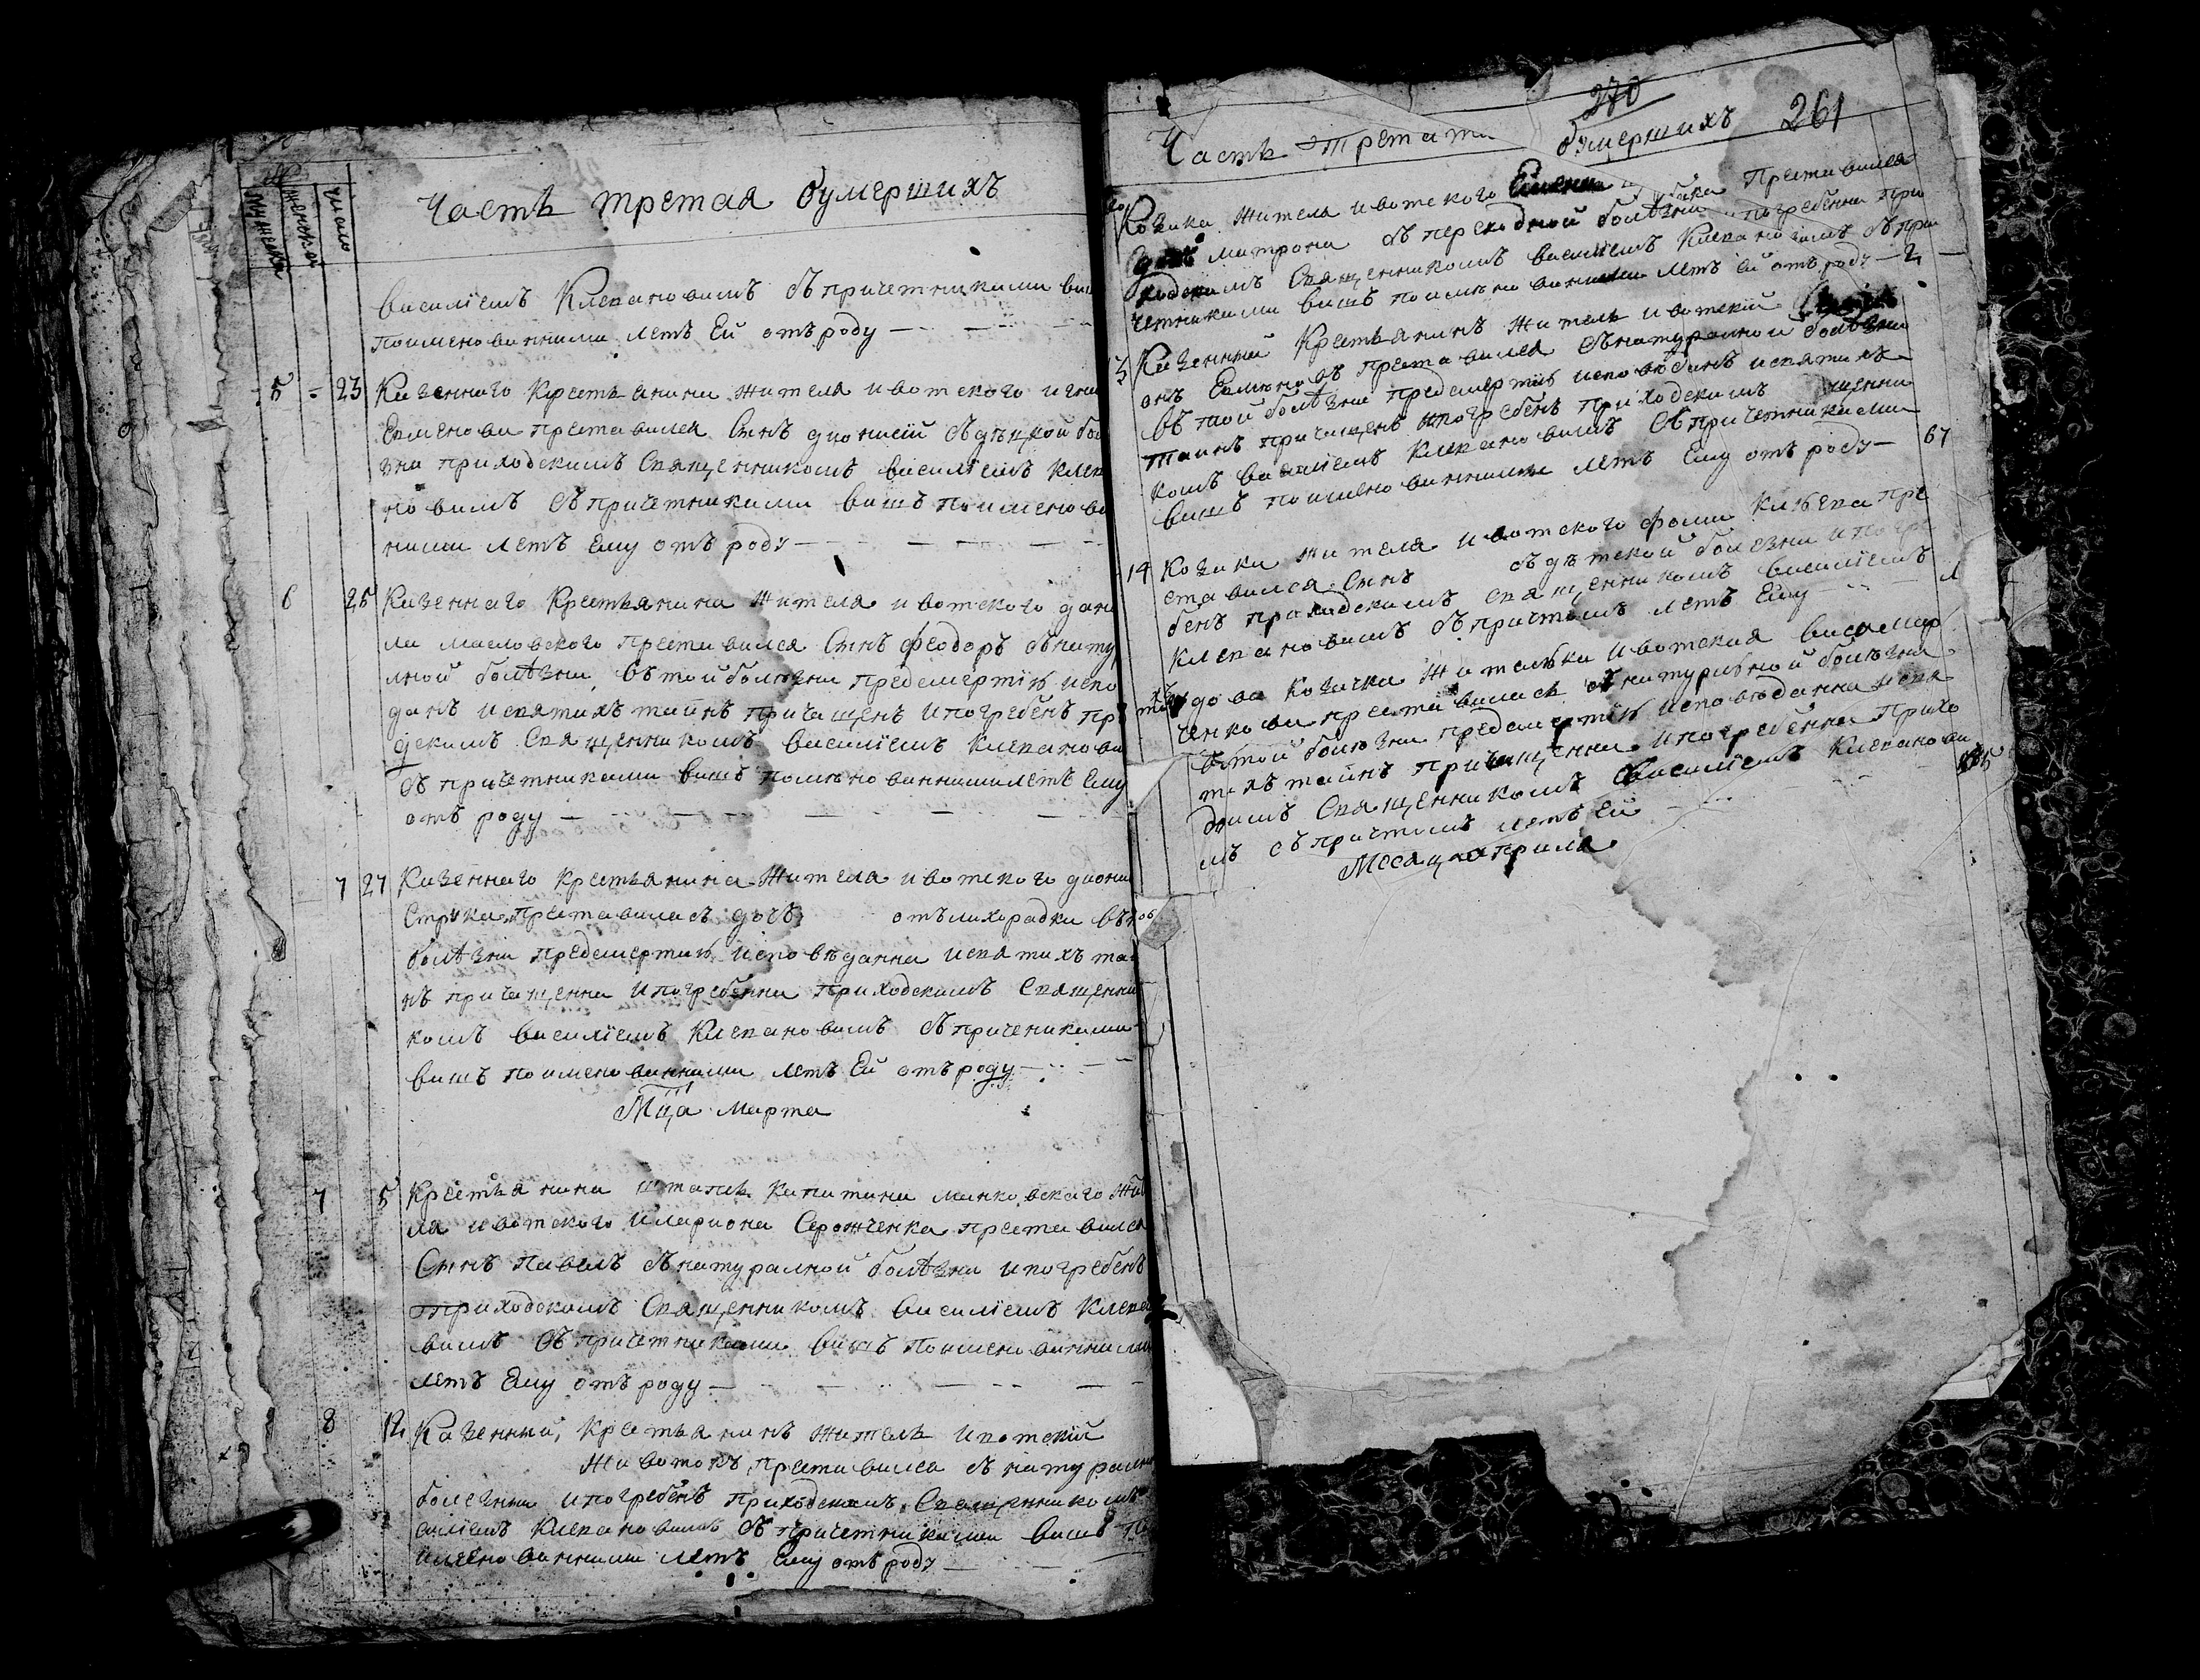 мужеска
женска
число
Часть третая оумершихъ
василіемъ Клепановимъ съ причетниками виш
поименованними летъ Ей отъ роду
5 23 Казенного Крестьянина жителя ивотского игна
Емменова преставился Сынъ дионисій съ дѣцкой бол
зни приходскимъ Священникомъ василіемъ Клепа
новимъ съ причетниками вишъ поименова
ними летъ Ему отъ роду
6 25 Казеннаго Крестьянина жителя ивотского дани
ла масловского преставился Сынъ феодоръ съ нату
лной болѣзни въ той болѣзни предсмертію испо
данъ и святихъ тайнъ причащенъ и погребенъ при
дскимъ Священникомъ василіемъ Клепанови
съ причетниками вишъ поименованними летъ Ему
отъ роду
7 27 Казеннаго Крестьянина жителя ивотского диони
преставилась дочь отъ лихорадки въ
болѣзни предсмертию исповѣданна и святихъ та
нъ причащенна и погребенна приходскимъ Священни
комъ василіемъ Клепановимъ съ причениками
вишъ поименованними летъ Ей отъ роду
Мца Марта
7 5 Крестьянина штапсъ Капитана минковскаго жи
ля ивотского илариона Сорожченка преставился
Сынъ павелъ съ натуралной болѣзни и погребенъ
приходскимъ Священникомъ василіемъ Клепа
вимъ съ причетниками вишъ поименованними
летъ Ему отъ роду
8 12 Казенный Крестьянинъ житель ивотскій
Животокъ преставился съ натурали
болезни и погребенъ приходскимъ Священникомъ
силіемъ Клепановимъ съ причетниками вишъ по
именованними летъ Ему отъ роду
270
Часть третая оумершихъ 261
Козака жителя ивотского Преставилася
митрона съ перекодной болѣзни и погребенна при
ходскимъ Священникомъ василіемъ Клепановимъ съ при
четниками вишъ поименованними летъ Ей отъ роду 2
Казенный Крестьянинъ житель ивотскій
преставился съ натуралной болѣзни
въ той болѣзни предсмертію исповѣданъ и святихъ
таинъ причащенъ и погребенъ приходскимъ щенни
комъ василіемъ Клепановимъ съ причетниками
вишъ поименованними летъ Ему отъ роду 67
14 Козака жителя ивотского фоми Князева пре
ставился Сынъ съ дѣтской болезни и погре
бенъ приходскимъ священникомъ василіемъ
Клепановимъ съ причтомъ летъ Ему 1
вдова Козачка жителька ивотская
ченкова преставилась съ натуралной болѣзни
въ той болѣзни предсмертію исповѣданна и свя
тихъ тайнъ причащенна и погребенна прихо
дскимъ Священникомъ василіемъ Клепанови
мъ съ причтомъ летъ Ей
Месяца априля